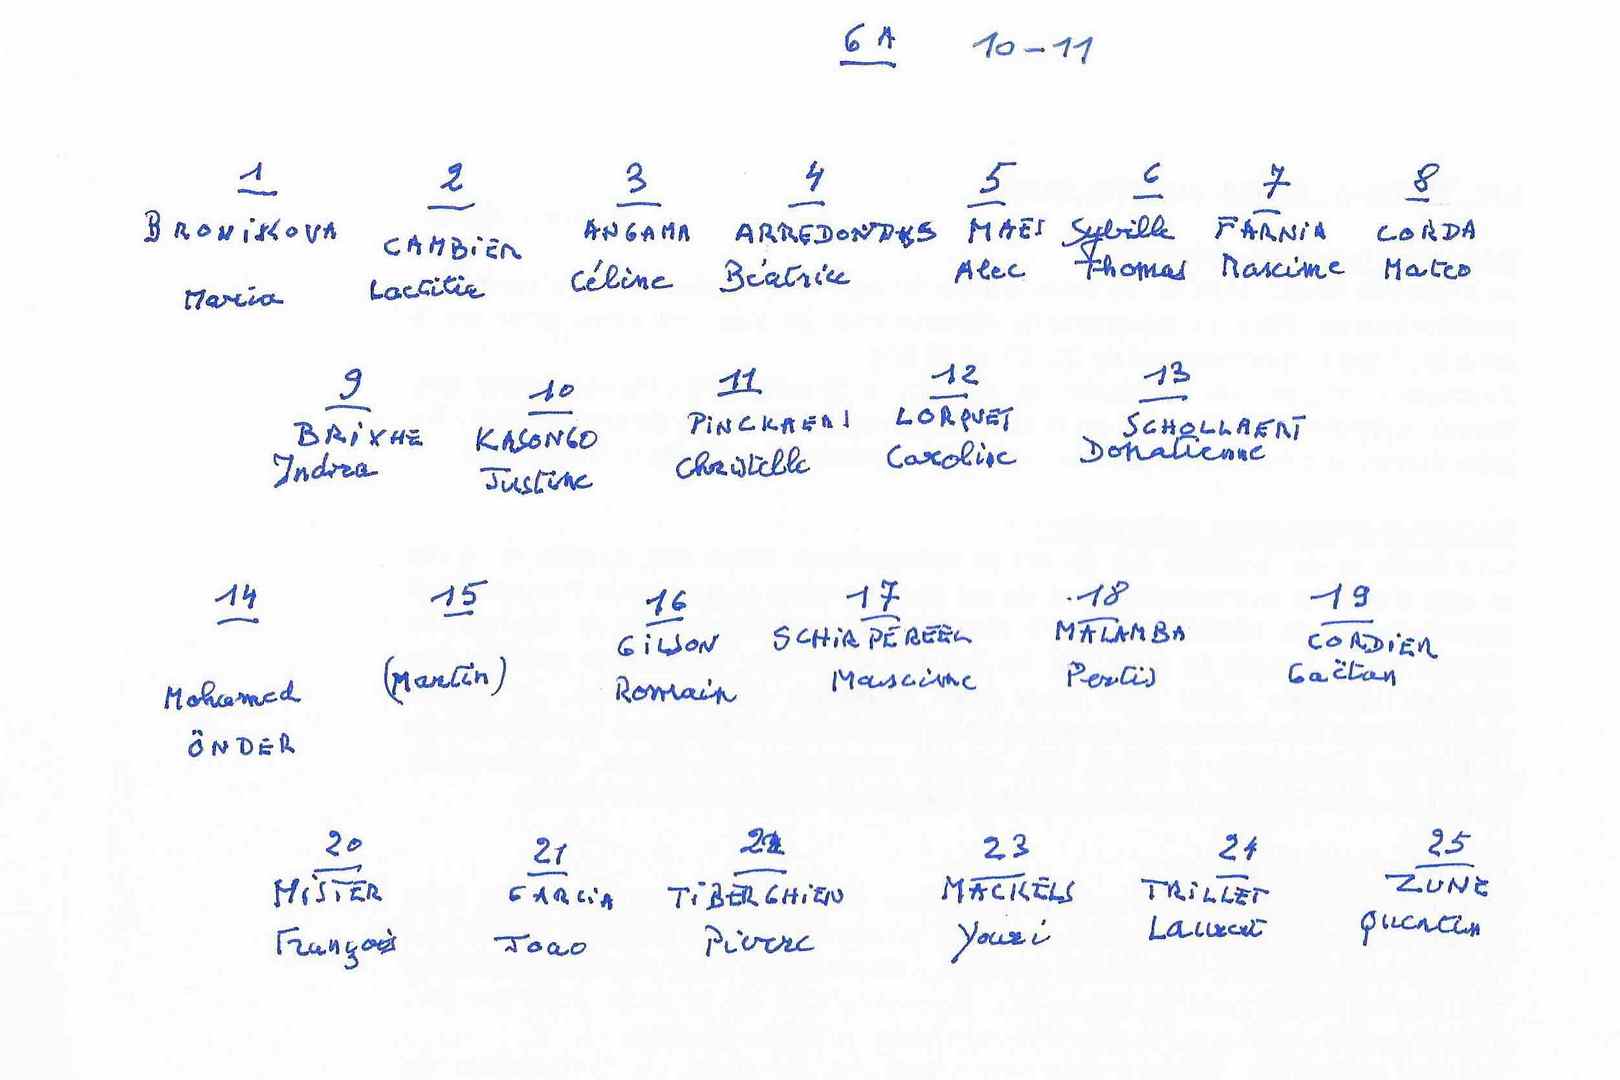 6 A 10-11
1 2 3 4 5 6 7 8
BRONIKOVA CAMBIER ANGAMA ARREDONDAS MAES Sybille FARNIA CORDA
Maria Laetitia Céline Béatrice Alec Thomas Maxime Mateo
9 10 11 12 13
BRIXHE KASONGO PINCKAERS LORQUET SCHOLLAERT
Indira Justine Christelle Caroline Donatienne
14 15 16 17 18 19
GILSON SCHIRPEREEL MALAMBA CORDIER
Mohamed (Martin) Romain Maxime Perlis Gaëtan
ÖNDER
20 21 22 23 24 25
MISTER GARCIA TIBERGHIEN MACKELS TRILLET ZUNE
François Joao Pierre Youri Laurent Quentin